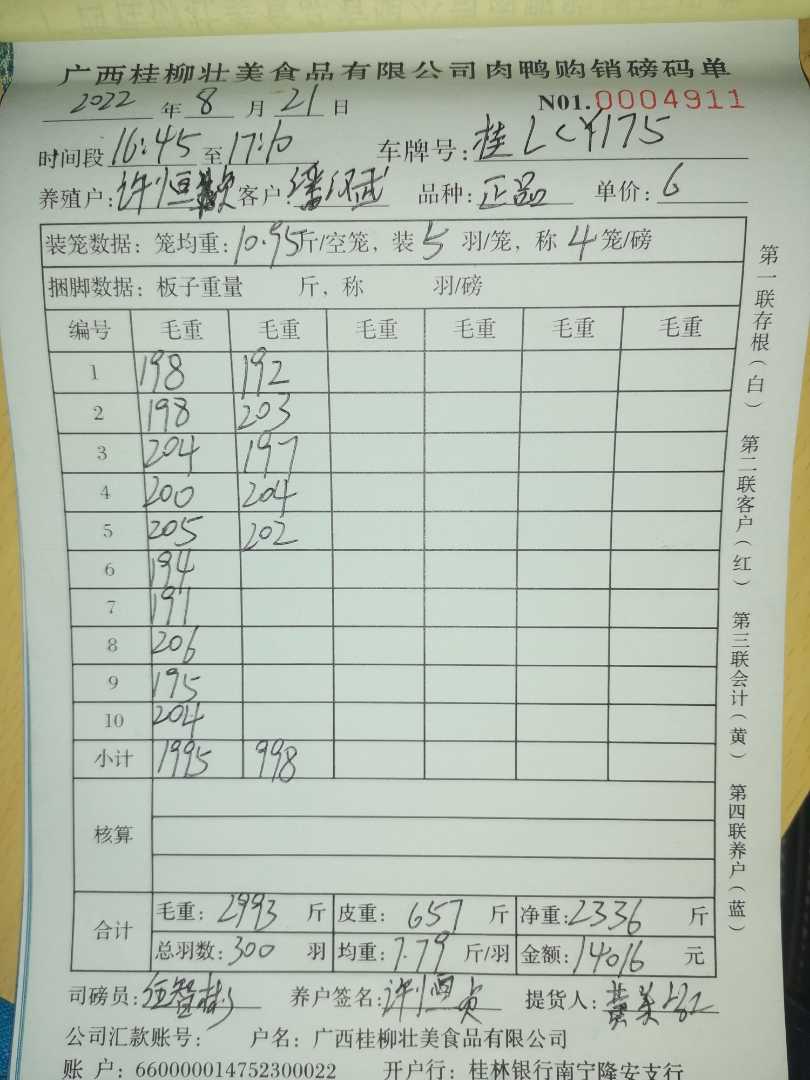 广西桂柳壮美食品有限公司肉鸭购销磅码单
2022 年 8 月 21 日 N01.0004911
时间段 16:45 至 17:10 车牌号: 桂LCY175
养殖户: 许恒 客户: 品种: 正品 单价: 6
装笼数据: 笼均重: 10.95斤/空笼, 装 5 羽/笼, 称 4 笼/磅
捆脚数据: 板子重量 斤, 称 羽/磅
编号 毛重 毛重 毛重 毛重 毛重 毛重
1 198 192
2 198 203
3 204 197
4 200 204
5 205 202
6 194
7 191
8 206
9 195
10 204
小计 1995 998
核算
合计 毛重: 2993 斤 皮重: 657 斤 净重: 2336 斤
总羽数: 300 羽 均重: 7.79 斤/羽 金额: 14016 元
司磅员: 养户签名: 许恒贞 提货人: 黄美
公司汇款账号: 户名: 广西桂柳壮美食品有限公司
账 户: 660000014752300022 开户行: 桂林银行南宁隆安支行
第一联存根(白) 第二联客户(红) 第三联会计(黄) 第四联养户(蓝)